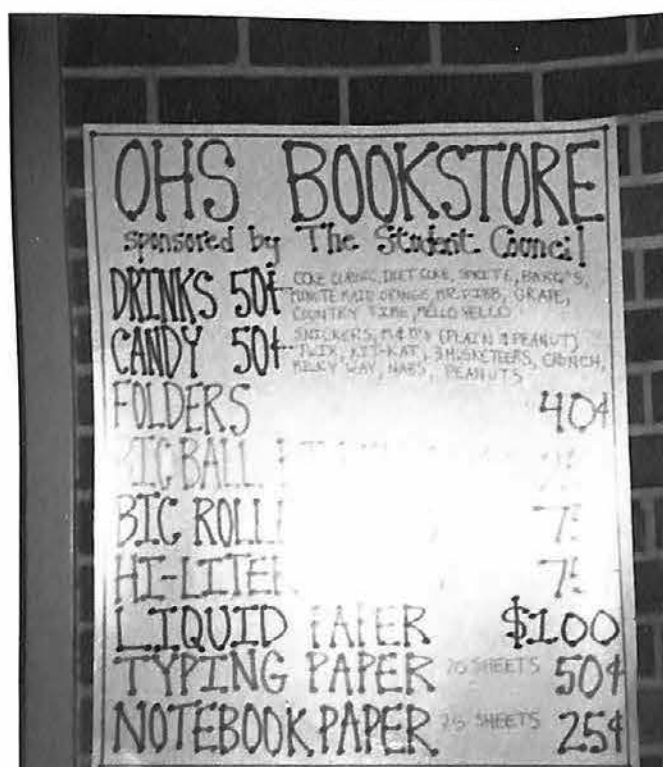 OHS BOOKSTORE
sponsored by The Student Council
DRINKS 50¢ COKE CLASSIC, DIET COKE, SPRITE, BARQ'S,
MINUTE MAID ORANGE, MR. PIBB, GRAPE,
COUNTRY TIME, MELLO YELLO
CANDY 50¢ SNICKERS, M&M'S (PLAIN & PEANUT)
TWIX, KIT-KAT, 3 MUSKETEERS, CRUNCH,
MILKY WAY, NABS, PEANUTS
FOLDERS 40¢
BIC BALL
BIC ROLL 75
HI-LITER 75
LIQUID PAPER $1.00
TYPING PAPER SHEETS 50¢
NOTEBOOK PAPER 25 SHEETS 25¢